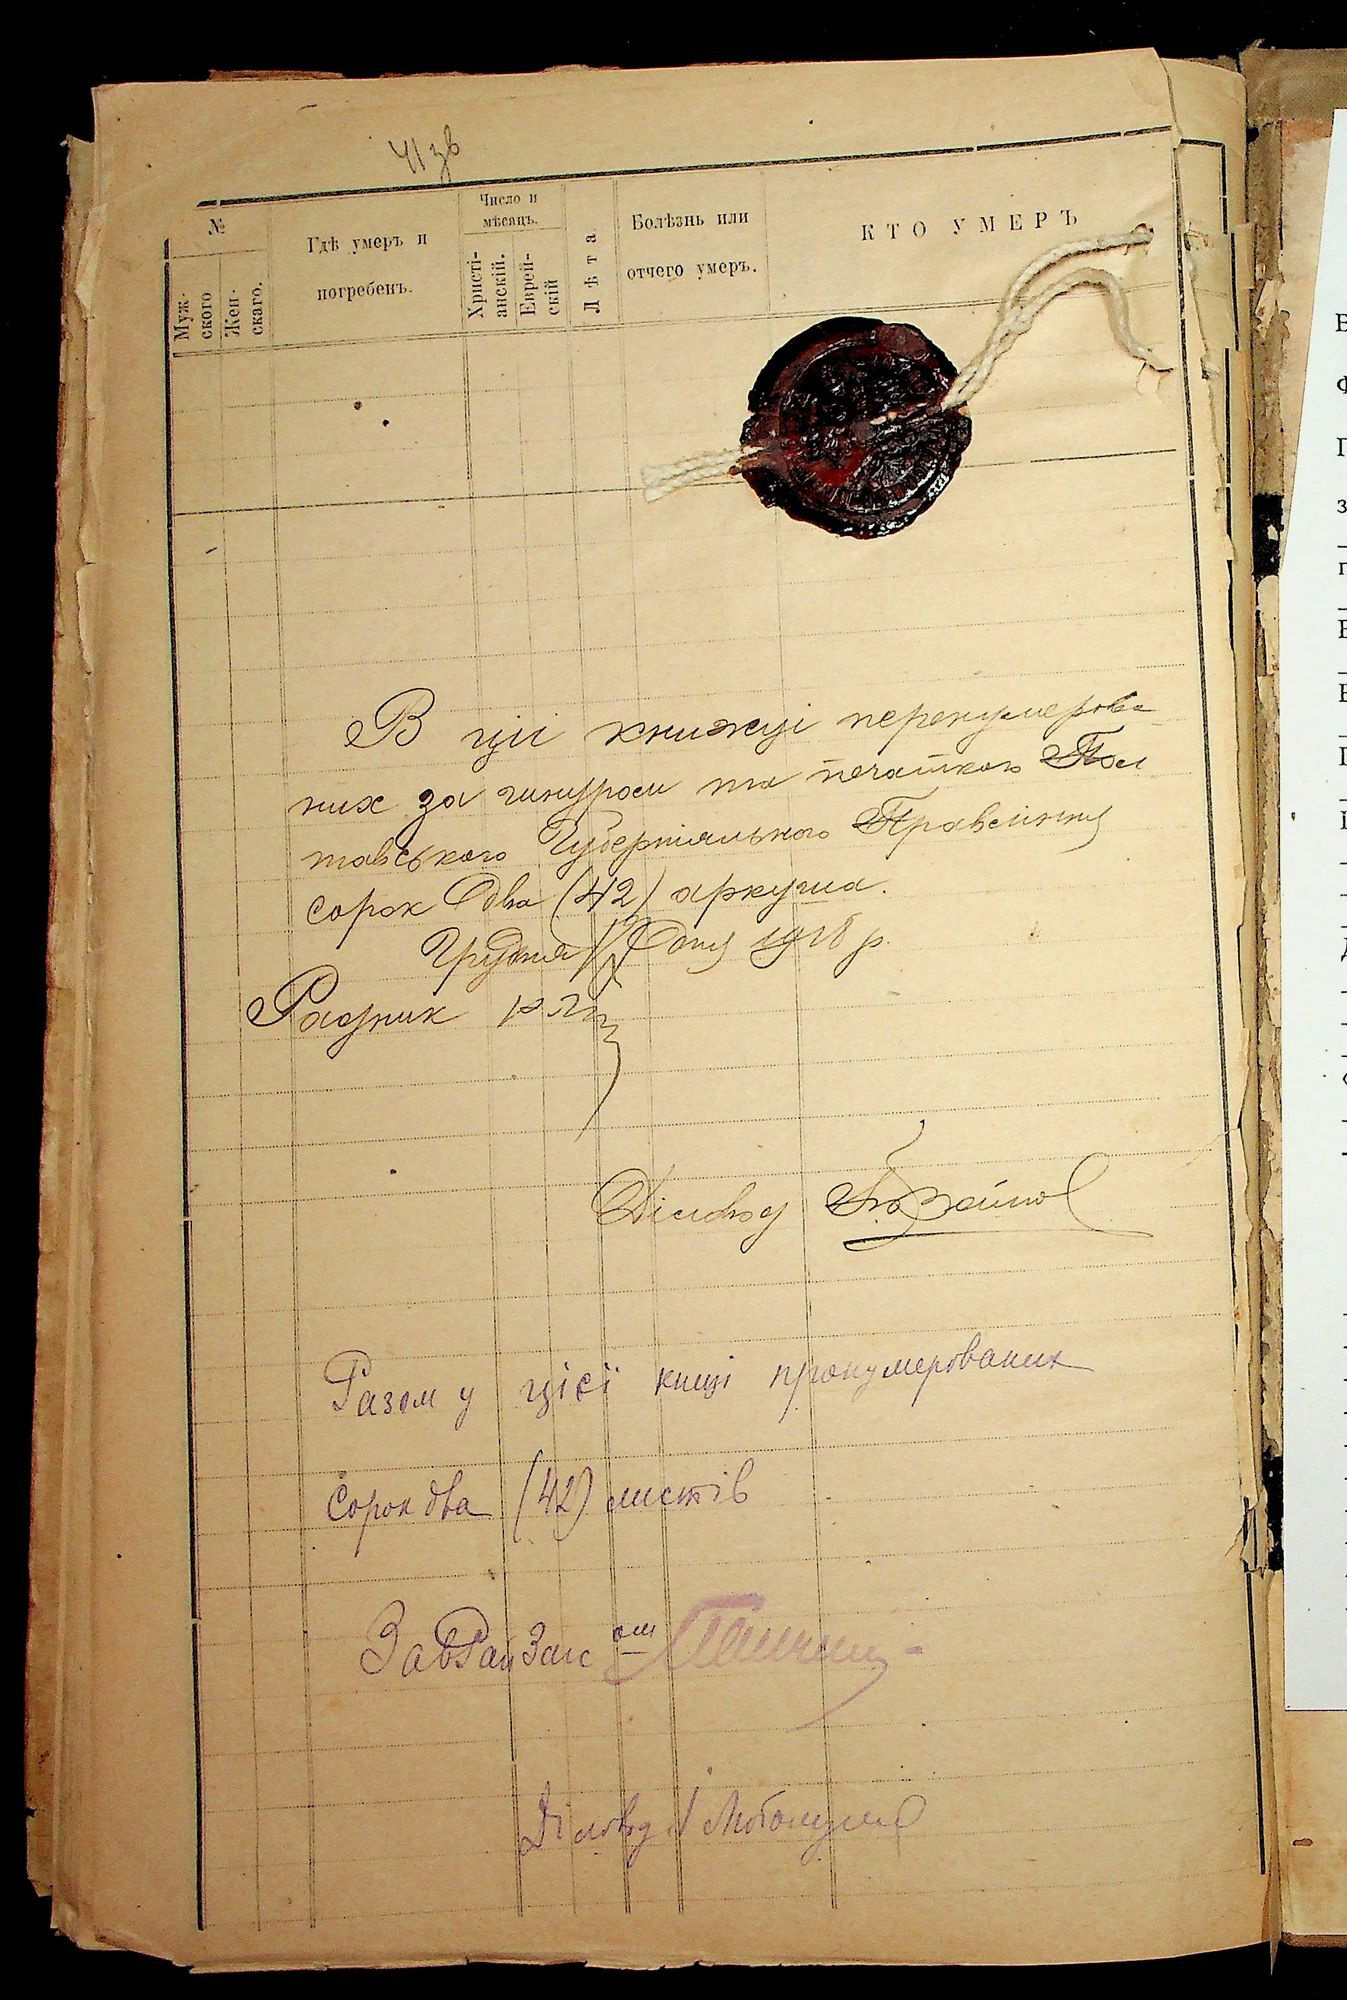 41 зв
№
Муж-
ского
Жен-
скаго.
Гдѣ умеръ и
погребенъ.
Число и
мѣсяцъ.
Христі-
анскій.
Еврей-
скій
Лѣта
Болѣзнь или
отчего умеръ.
КТО УМЕРЪ
В ції книжці перенумерова-
них за шнуром та печаткою Пол
тавського Губерніяльного Правління
сорок два (42) аркуша.
Грудня дня 1918 р.
Радник
Діловод
Разом у цієї книзі пронумерованих
сорок два (42) листів
ЗавРайЗагс
Діловод